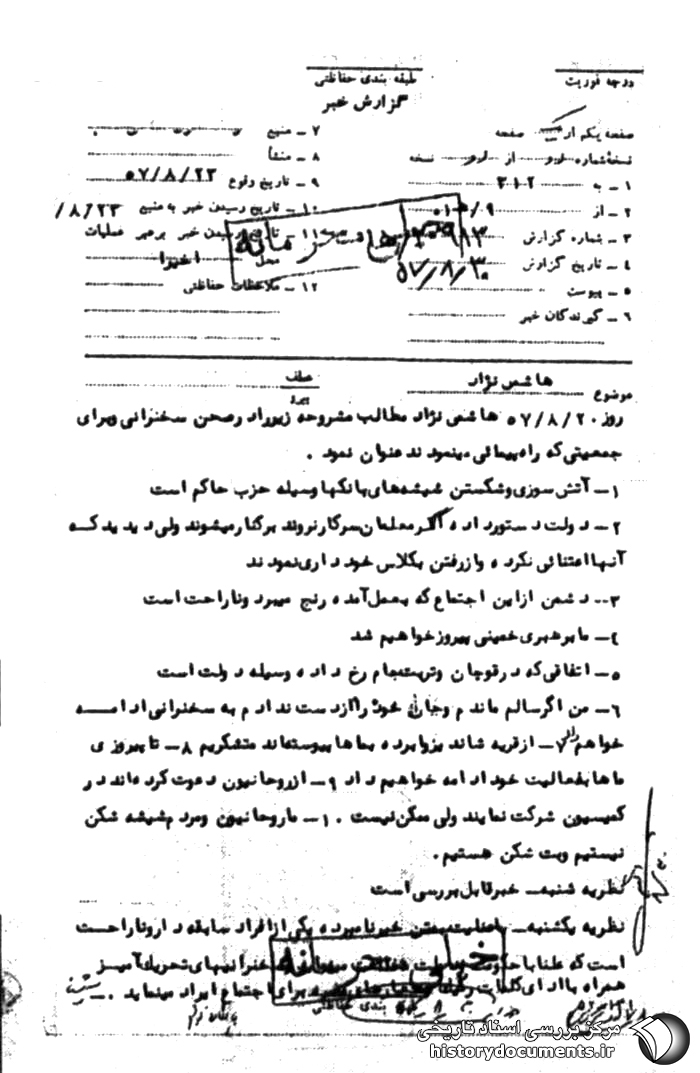 درجه فوریت
طبقه بندی حفاظتی
گزارش خبر
صفحه یکم از صفحه
نسخه شماره از نسخه
۱ ـ به ۳۱۲
۲ ـ از
۳ ـ شماره گزارش
۴ ـ تاریخ گزارش ۵۷/۸/۳۰
۵ ـ پیوست
۶ ـ گیرندگان خبر
۷ ـ منبع
۸ ـ منشأ
۹ ـ تاریخ وقوع ۵۷/۸/۲۳
۱۰ ـ تاریخ رسیدن خبر به منبع ۸/۲۳/
۱۱ ـ تاریخ رسیدن خبر برهبر عملیات
محل اخیرا
۱۲ ـ ملاحظات حفاظتی
موضوع هاشمی نژاد
عطف
پیرو
روز ۵۷/۸/۲۰ هاشمی نژاد مطالب مشروحه زیررادرصحن سخنرانی وبرای
جمعیتی که راهپیمائی مینمودند عنوان نمود .
۱ـ آتش سوزی وشکستن شیشه های بانکها وسیله حزب حاکم است
۲ـ دولت دستورداده اگر معلمان سرکارنروند برکنارمیشوند ولی دیدید کـه
آنها اعتنائی نکرده وازرفتن بکلاس خودداری نمودند
۳ـ دشمن ازاین اجتماع که بعمل آمده رنج میبرد وناراحت است
۴ـ مابرهبری خمینی پیروزخواهیم شد
۵ـ اتفاقی که درقوچان وتربت جام رخ داده وسیله دولت است
۶ـ من اگرسالم ماندم وجان خودراازدست ندادم به سخنرانی ادامـــه
خواهم داد ۷ـ ازقریه شاندیزوابرده بماها پیوسته اند متشکریم ۸ـ تاپیروزی
ماها بفعالیت خودادامه خواهیم داد ۹ـ ازروحانیون دعوت کرده اند در
کمیسیون شرکت نمایند ولی ممکن نیست ۱۰ـ ماروحانیون ومردم شیشه شکن
نیستیم وبت شکن هستیم .
نظریه شنبه ـ خبرقابل بررسی است
نظریه یکشنبه ـ نامبرده یکی ازافراد سابقه دار وناراحت
است که علنا با سخنرانیهای تحریک آمیـز
همراه با ادای کلمات برای اجتماع ایراد مینماید .
طبقه بندی حفاظتی
مرکز بررسی اسناد تاریخی
historydocuments.ir